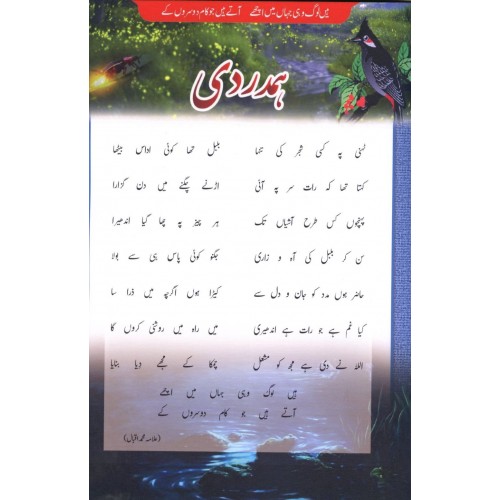 ہیں لوگ وہی جہاں میں اچھے آتے ہیں جو کام دوسروں کے
ہمدردی
ٹہنی پہ کسی شجر کی تنہا بلبل تھا کوئی اداس بیٹھا
کہتا تھا کہ رات سر پہ آئی اڑنے چگنے میں دن گزارا
پہنچوں کس طرح آشیاں تک ہر چیز پہ چھا گیا اندھیرا
سن کر بلبل کی آہ و زاری جگنو کوئی پاس ہی سے بولا
حاضر ہوں مدد کو جان و دل سے کیڑا ہوں اگرچہ میں ذرا سا
کیا غم ہے جو رات ہے اندھیری میں راہ میں روشنی کروں گا
اللہ نے دی ہے مجھ کو مشعل چمکا کے مجھے دیا بنایا
ہیں لوگ وہی جہاں میں اچھے
آتے ہیں جو کام دوسروں کے
(علامہ محمد اقبال)